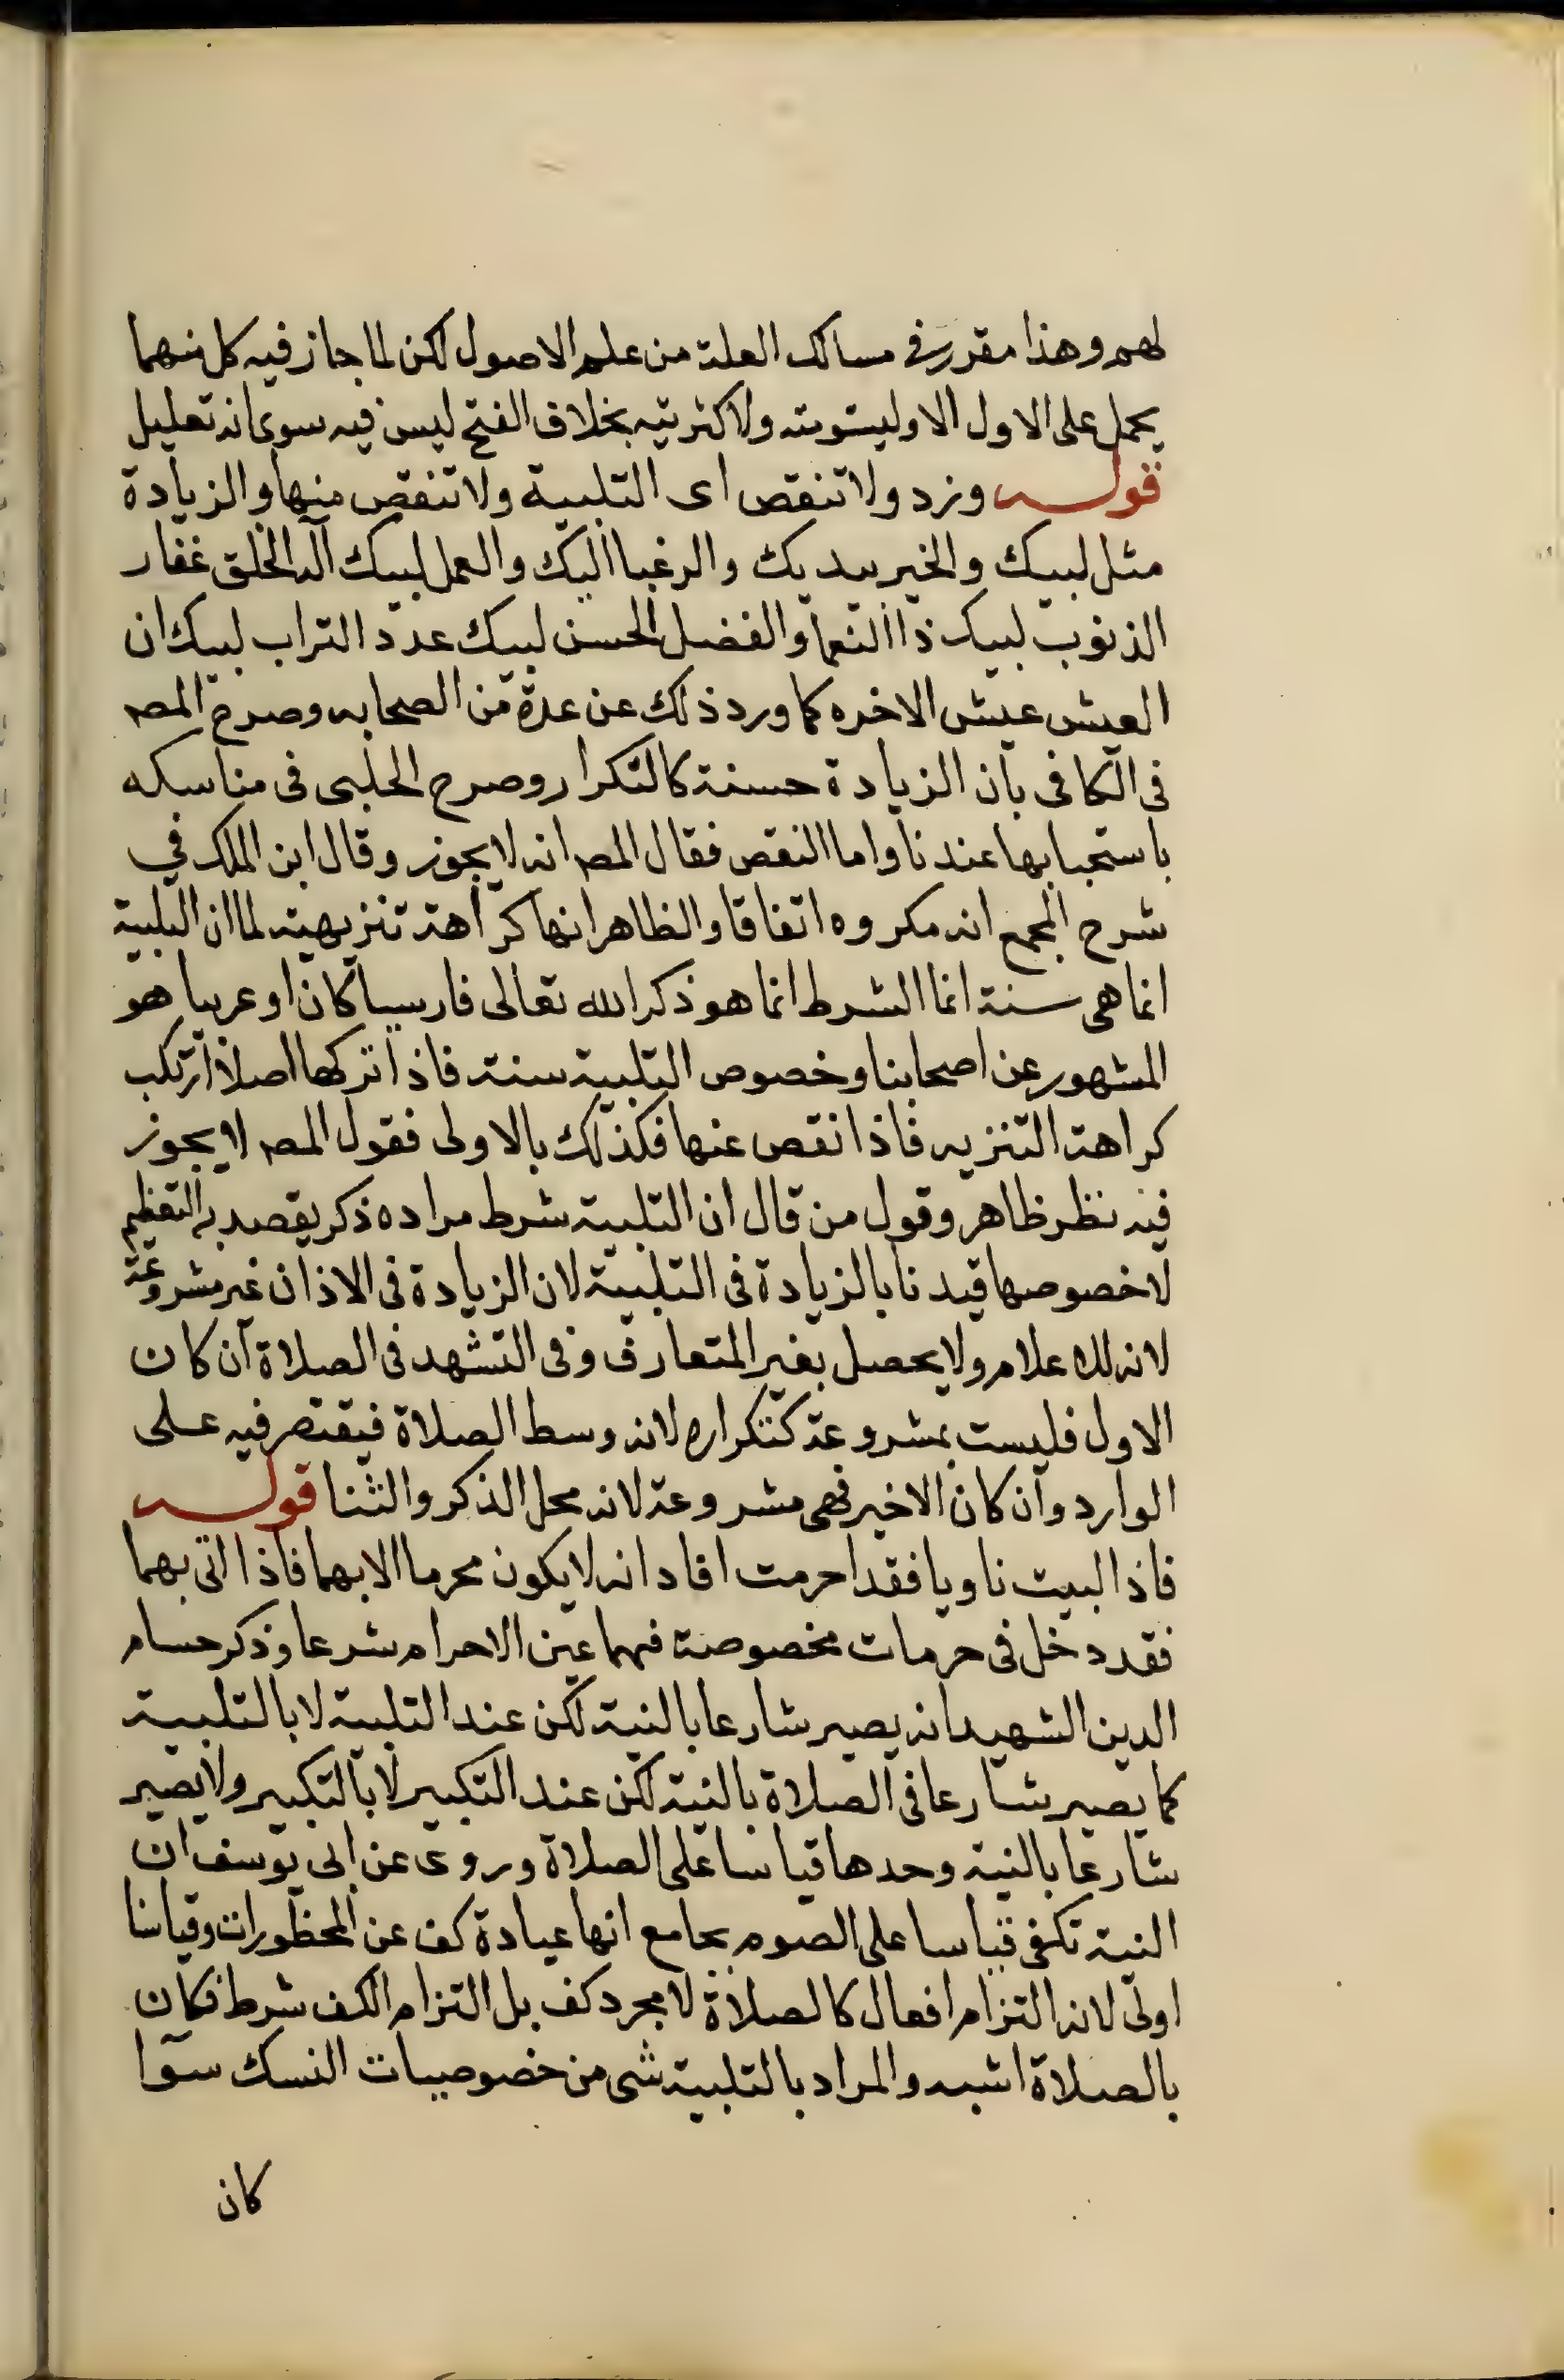 لهم وهذا مقرر في مسالك العلة من علم الاصول لكن لما جاز فيه كل منهما
يحمل على الاول الاوليتومته ولاكثريته بخلاف الفتح ليس فيه سوى انه تعليل
قوله وزد ولا تنقص اى التلبية ولا تنقص منها والزيادة
مثل لبيك والخير بيديك والرغبا اليك والعمل لبيك اله الخلق غفار
الذنوب لبيك ذا النعما والفضل الحسن لبيك عدد التراب لبيك ان
العيش عيش الاخره كما ورد ذلك عن عدة من الصحابه وصرح المصـ
فى الكافى بان الزيادة حسنة كالتكرار وصرح الحلبى فى مناسكه
باستحبابها عندنا واما النقص فقال المصـ انه لا يجوز وقال ابن الملك في
شرح المجمع انه مكروه اتفاقا والظاهر انها كراهة تنزيهية لما ان التلبية
انما هى سنة انما الشرط انما هو ذكر الله تعالى فارسيا كان او عربيا هو
المشهور عن اصحابنا وخصوص التلبية سنة فاذا تركها اصلا ارتكب
كراهة التنزيه فاذا نقص عنها فكذلك بالاولى فقول المصـ لا يجوز
فيه نظر ظاهر وقول من قال ان التلبية شرط مراده ذكر يقصد به التعظيم
لا خصوصها قيدنا بالزيادة فى التلبية لان الزيادة فى الاذان غير مشروعة
لانه للاعلام ولا يحصل بغير المتعارف وفى التشهد فى الصلاة ان كان
الاول فليست بمشروعة كتكراره لانه وسط الصلاة فيقتصر فيه على
الوارد وان كان الاخير فهى مشروعة لانه محل الذكر والثنا قوله
فاذا لبيت ناويا فقد احرمت افاد انه لا يكون محرما الا بهما فاذا اتى بهما
فقد دخل فى حرمات مخصوصة فهما عين الاحرام شرعا وذكر حسام
الدين الشهيد انه يصير شارعا بالنية لكن عند التلبية لا بالتلبية
كما يصير شارعا فى الصلاة بالنية لكن عند التكبير لا بالتكبير ولا يصير
شارعا بالنية وحدها قياسا على الصلاة وروى عن ابى يوسف ان
النية تكفى قياسا على الصوم بجامع انها عبادة كف عن المحظورات وقياسنا
اولى لانه التزام افعال كالصلاة لا مجرد كف بل التزام الكف شرط فكان
بالصلاة اشبه والمراد بالتلبية شى من خصوصيات النسك سوا
كان